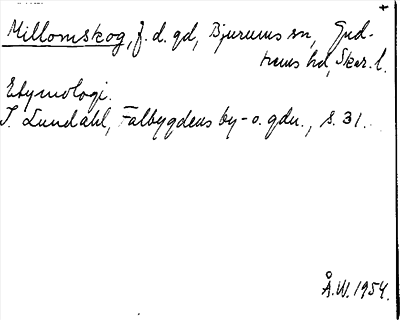 Millomskog, f.d. gd, Bjurums sn, Gud-
hems hd, Skar. l.
Etymologi.
I. Lundahl, Falbygdens by- o. gdn., s. 31.
Å.W. 1954.